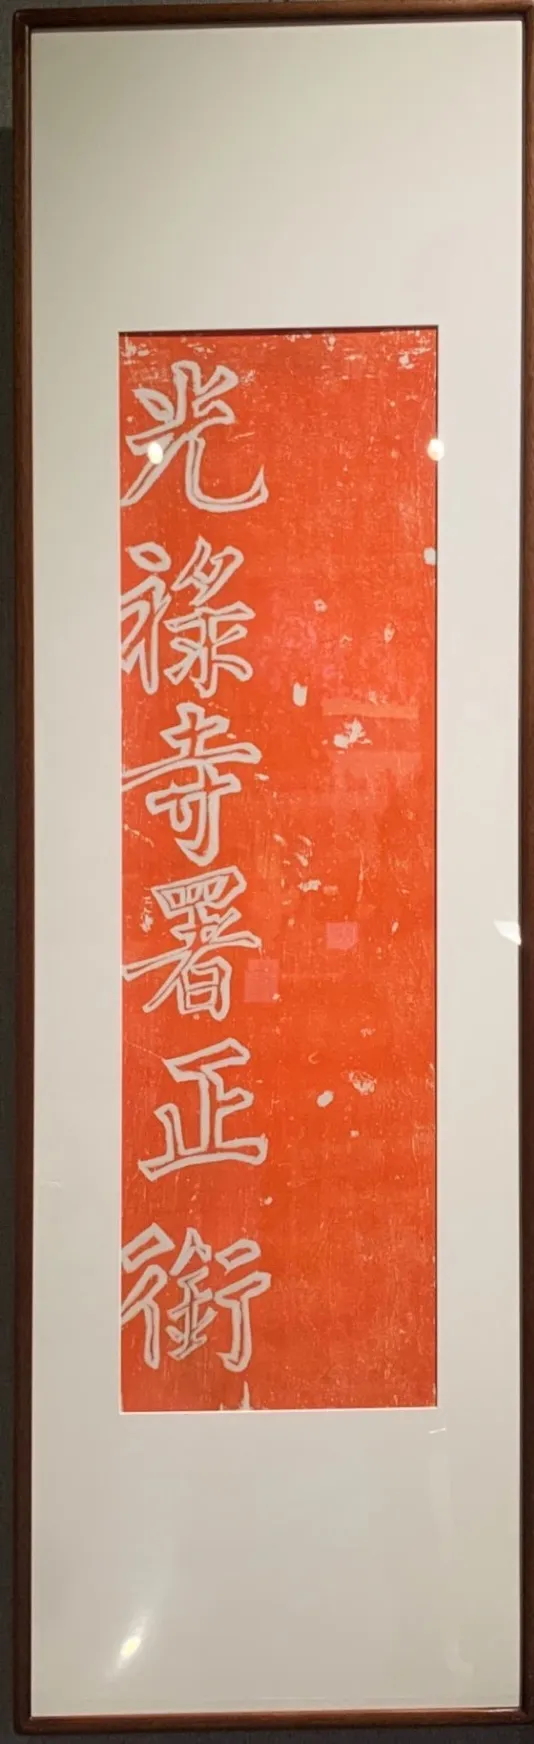 光祿寺署正銜